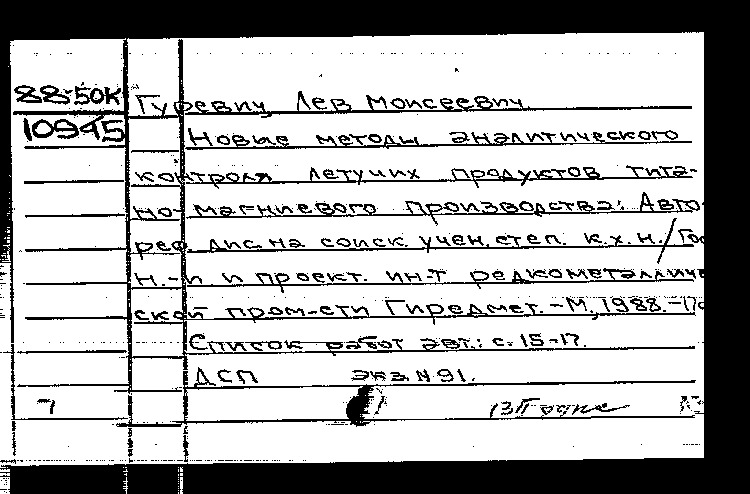 88-50К
10945
Гуревич, Лев Моисеевич
Новые методы аналитического
контроля летучих продуктов тита-
но-магниевого производства: Авто
реф. дис. на соиск. учен. степ. к.х.н. / Гос
н.-и и проект. ин-т редкометалличе
ской пром-сти Гиредмет. - М, 1988. -
Список работ авт.: с. 15-17.
ДСП экз. N 91.